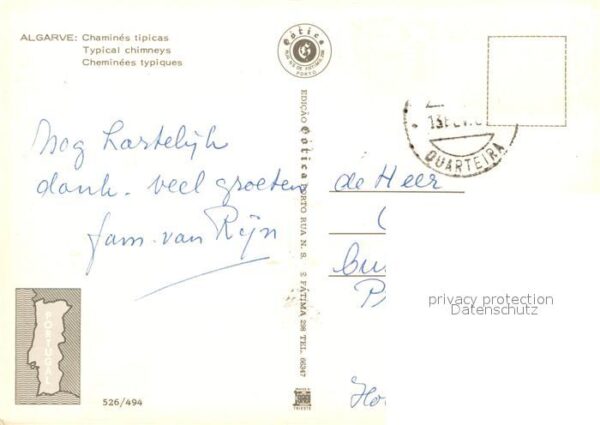 ALGARVE: Chaminés típicas
Typical chimneys
Cheminées typiques
Gótica
G
PORTO
Nog hartelijk
dank. veel groeten
fam. van Rijn
PORTUGAL
526/494
EDIÇÃO Gótica PORTO RUA N. S. FÁTIMA 298 TEL. 66347
TRIESTE
QUARTEIRA
de Heer
privacy protection
Datenschutz